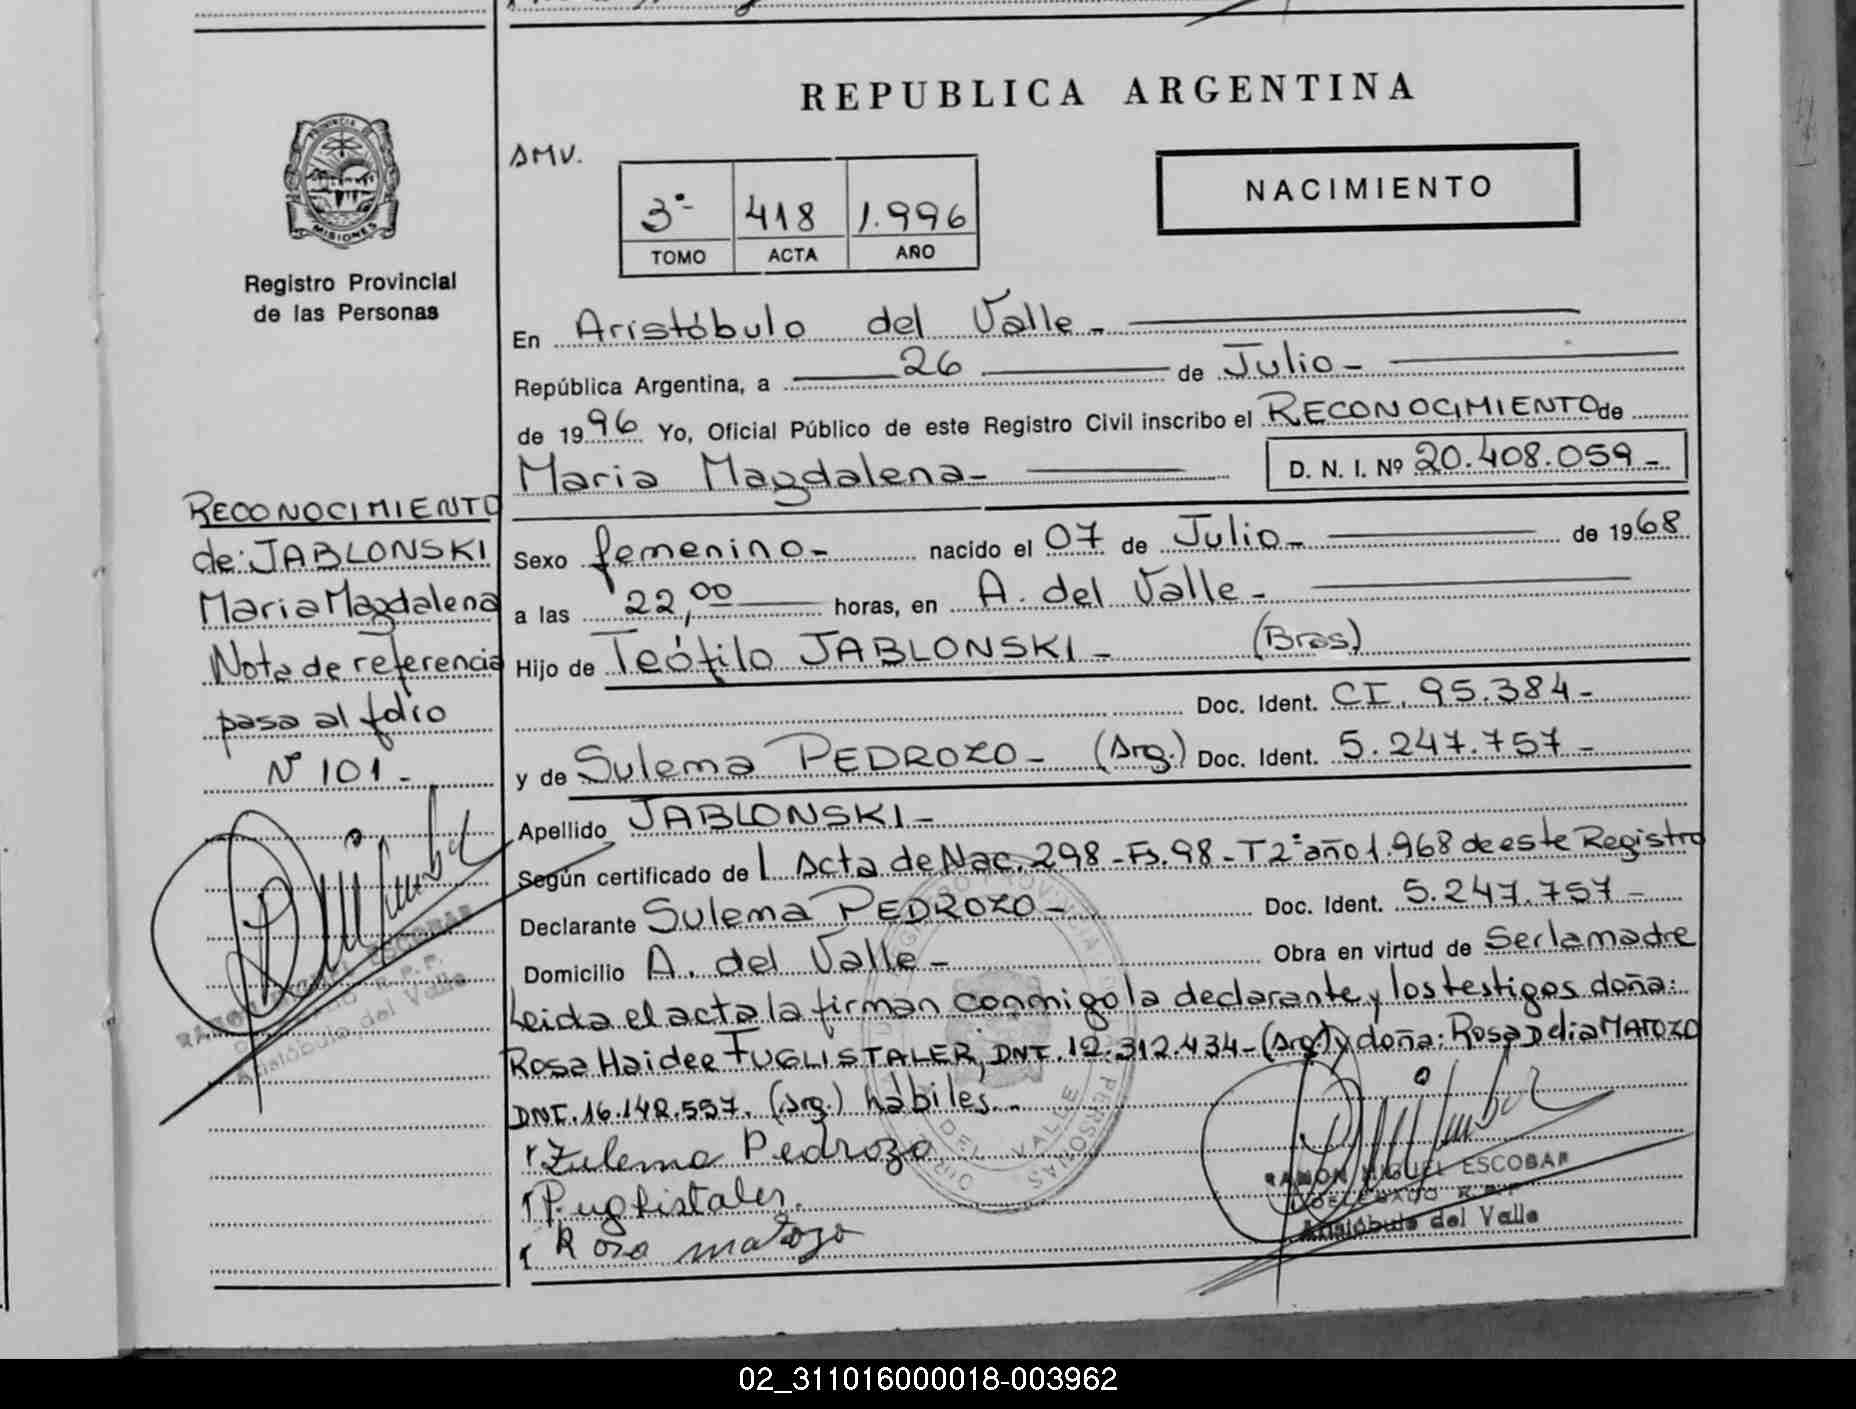 REPUBLICA ARGENTINA
PROVINCIA DE
MISIONES
Registro Provincial
de las Personas
NACIMIENTO
3º- 418 1.996
TOMO ACTA AÑO
En Aristóbulo del Valle-
República Argentina, a 26 de Julio-
de 1996 Yo, Oficial Público de este Registro Civil inscribo el RECONOCIMIENTO de
Maria Magdalena- D. N. I. Nº 20.408.059-
Sexo femenino- nacido el 07 de Julio- de 1968
a las 22,00 horas, en A. del Valle-
Hijo de Teófilo JABLONSKI- (Bras)
Doc. Ident. CI. 95.384-
y de Sulema PEDROZO- (Arg.) Doc. Ident. 5.247.757-
Apellido JABLONSKI-
Según certificado de Acta de Nac. 298-Fs.98-T2º año 1.968 de este Registro
Declarante Sulema PEDROZO- Doc. Ident. 5.247.757-
Domicilio A. del Valle- Obra en virtud de Ser la madre
Leida el acta la firman conmigo la declarante y los testigos doña:
Rosa Haidee FUGLISTALER, DNI. 12.312.434-(Arg.) y doña: Rosa Delia MATOZO
DNI. 16.142.557. (Arg.) hábiles.-
Zulema Pedrozo
Rosa matozo
RAMON MIGUEL ESCOBAR
DELEGADO R.P.P.
Aristóbulo del Valle
RECONOCIMIENTO
de: JABLONSKI
Maria Magdalena
Nota de referencia
pasa al folio
Nº 101-
RAMON MIGUEL ESCOBAR
Aristóbulo del Valle
02_311016000018-003962